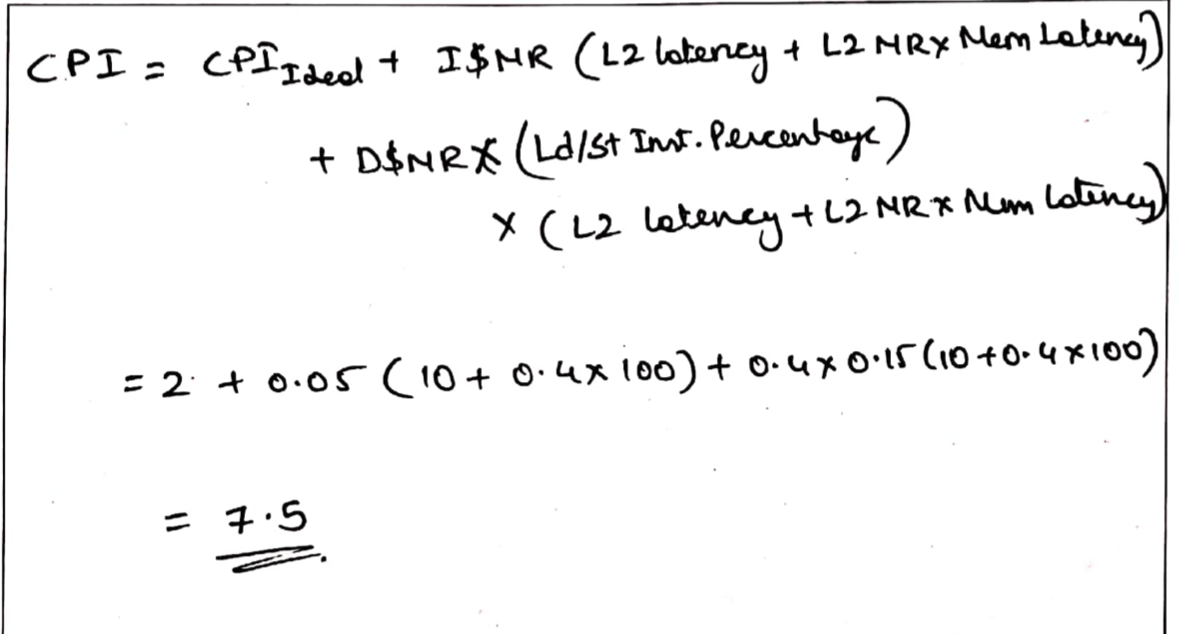 CPI = CPI Ideal + I$MR (L2 latency + L2 MR x Mem Latency)
+ D$MR x (Ld/St Inst. Percentage)
x (L2 latency + L2 MR x Mem Latency)
= 2 + 0.05 (10 + 0.4 x 100) + 0.4 x 0.15 (10 + 0.4 x 100)
= 7.5